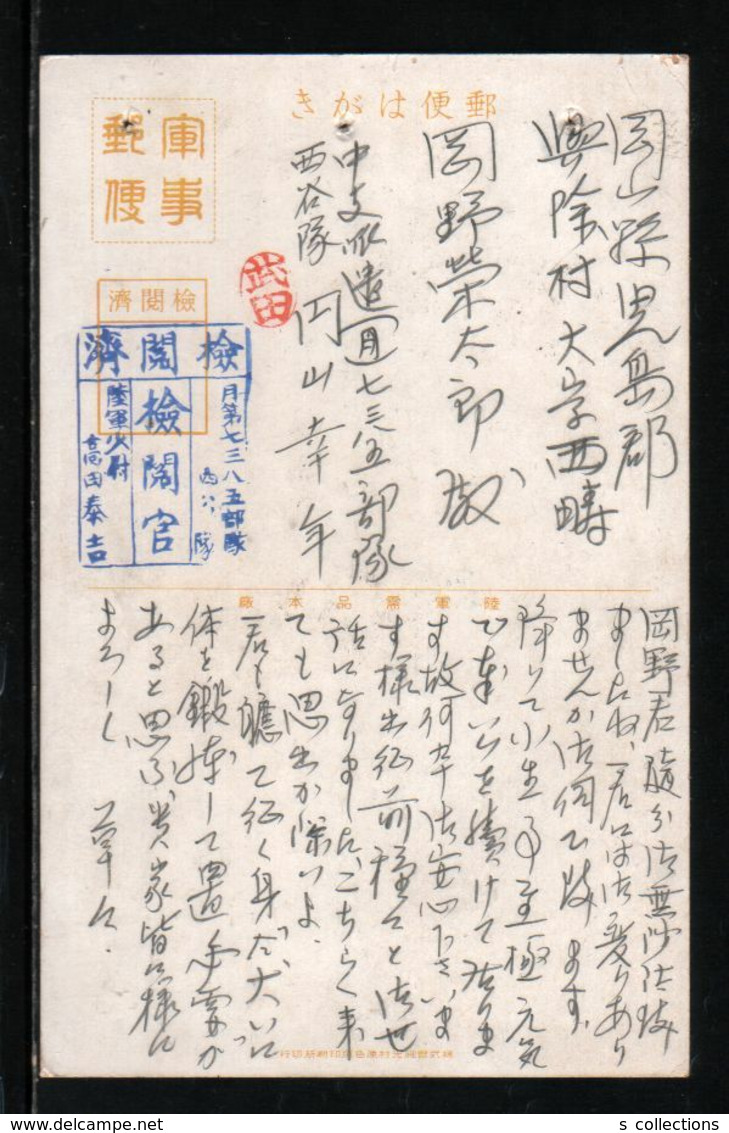 郵便はがき
軍事
郵便
檢閲濟
岡山縣児島郡
興除村大字西疇
岡野榮太郎殿
中支派遣月七三八五部隊
西谷隊 円山幸年
武田
檢閲濟
月第七三八五部隊
隊
檢閲官
陸軍少尉
高田泰吉
陸軍需品本廠
岡野君随分御無沙汰致
しましたね、君にはお変りあり
ませんか御伺ひ致します。
降りて小生事至極元気
で軍ムを續けて居りま
す故何卒御安心下さいま
す様出征前種々と御世
話になりました、こちらへ来
ても思出が深いよ。
君も聽て征く身だ、大いに
体を鍛錬して置く必要が
あると思ふ、貴家皆々様に
よろしく
草々.
s collections